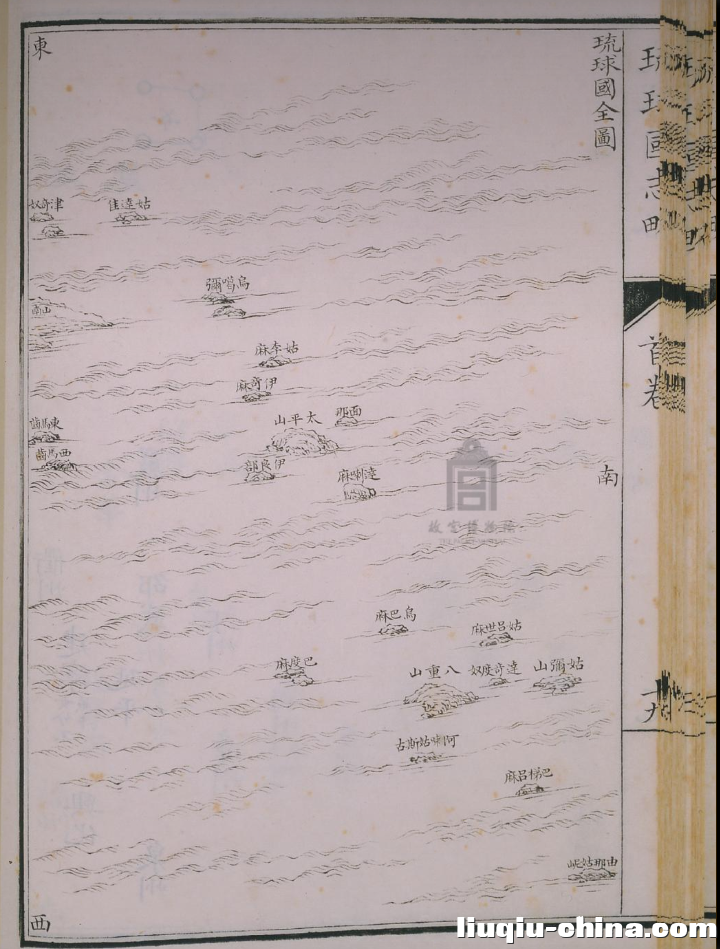 琉球國志略
首卷
十九
琉球國全圖
東
南
西
姑達佳
津奇奴
烏噶彌
山南
姑李麻
伊奇麻
太平山
面那
伊良部
達喇麻
東馬齒
西馬齒
烏巴麻
姑呂世麻
巴度麻
八重山
達奇度奴
姑彌山
阿喇姑斯古
巴梯呂麻
由那姑呢
故宮博物院
liuqiu-china.com